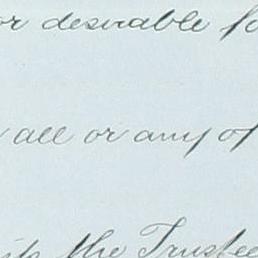 or desirable fo
all or any of
the Trustee